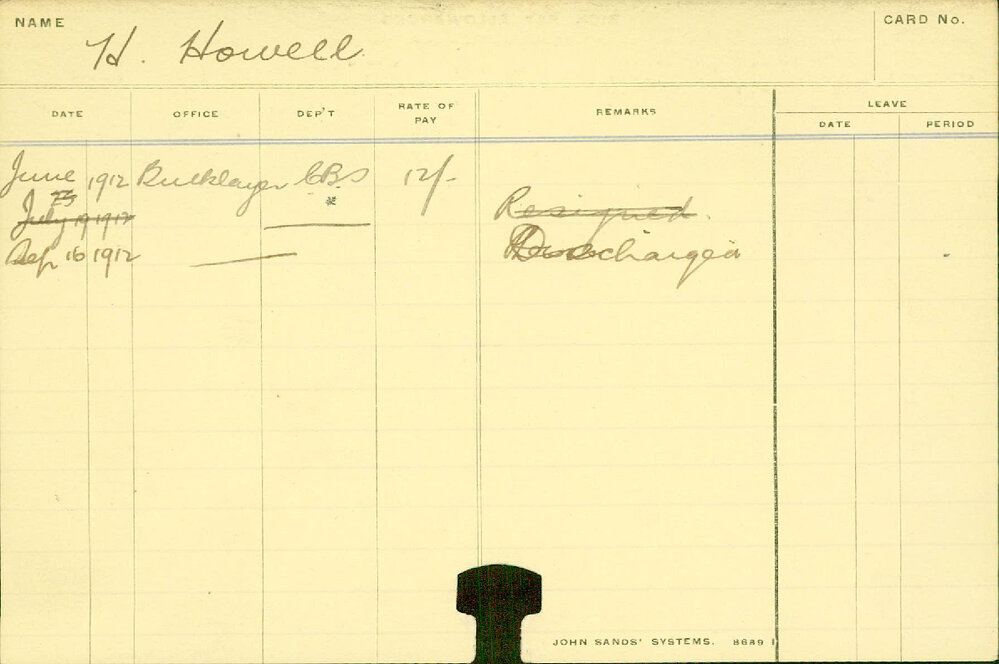 NAME H. Howell CARD No.
DATE OFFICE DEP'T RATE OF PAY REMARKS LEAVE
DATE PERIOD
June 1912 Bricklayer C.B.S 12/-
23
July 19 1912 Resigned.
Sep 16 1912 Discharged
JOHN SANDS' SYSTEMS. 8689